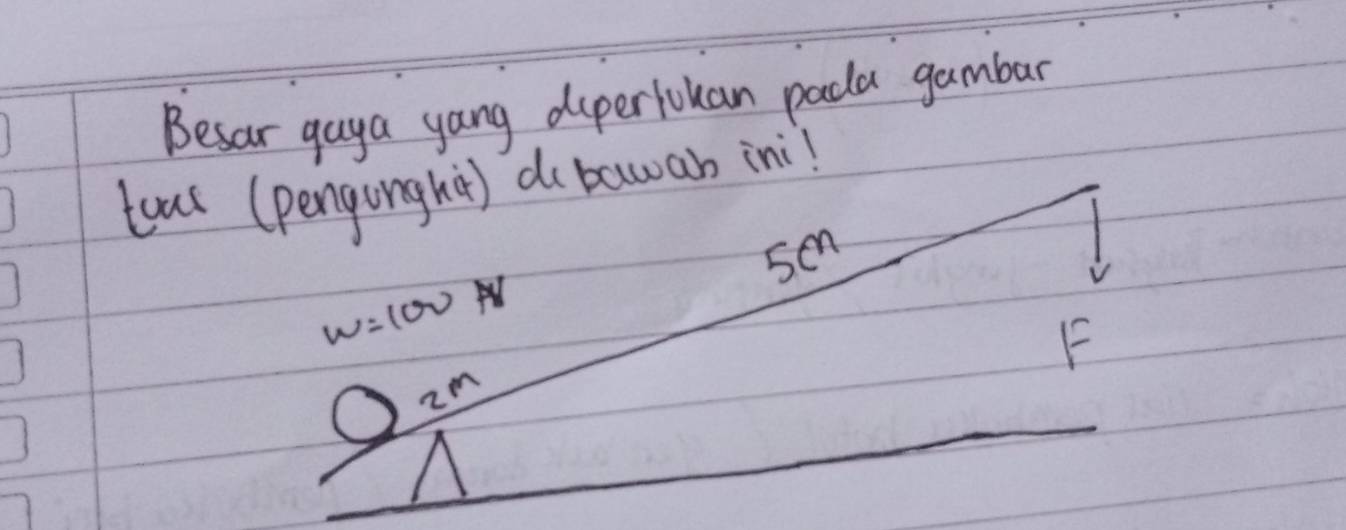 Besar gaya yang diperlukan pada gambar
tuas (pengungkit) di bawah ini!
5m
w=100 N
2m
F